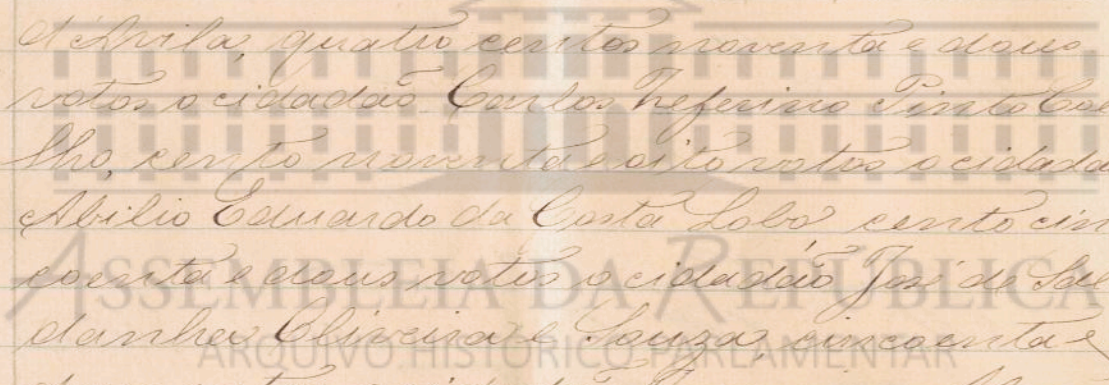 d'Avila, quatro centos noventa e dous
votos o cidadão Carlos Zeferino Pinto Coe
lho, cento noventa e oito votos o cidadão
Abilio Eduardo da Costa Lobo cento cin
coenta e dous votos o cidadão José de Sal
danha Oliveira e Souza, cincoenta e
ASSEMBLEIA DA REPÚBLICA
ARQUIVO HISTÓRICO PARLAMENTAR